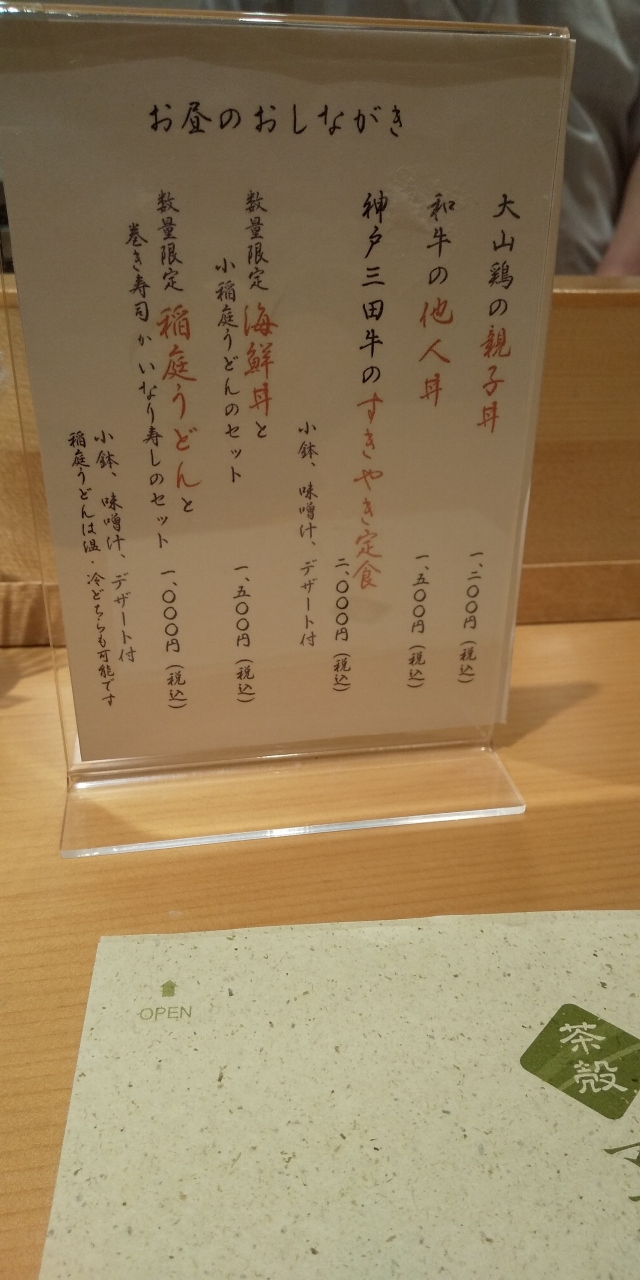 お昼のおしながき
大山鶏の親子丼 一、二〇〇円（税込）
和牛の他人丼 一、五〇〇円（税込）
神戸三田牛のすきやき定食 二、〇〇〇円（税込）
小鉢、味噌汁、デザート付
数量限定 海鮮丼と
小稲庭うどんのセット 一、五〇〇円（税込）
数量限定 稲庭うどんと
巻き寿司かいなり寿しのセット 一、〇〇〇円（税込）
小鉢、味噌汁、デザート付
稲庭うどんは温・冷どちらも可能です
OPEN
茶殻